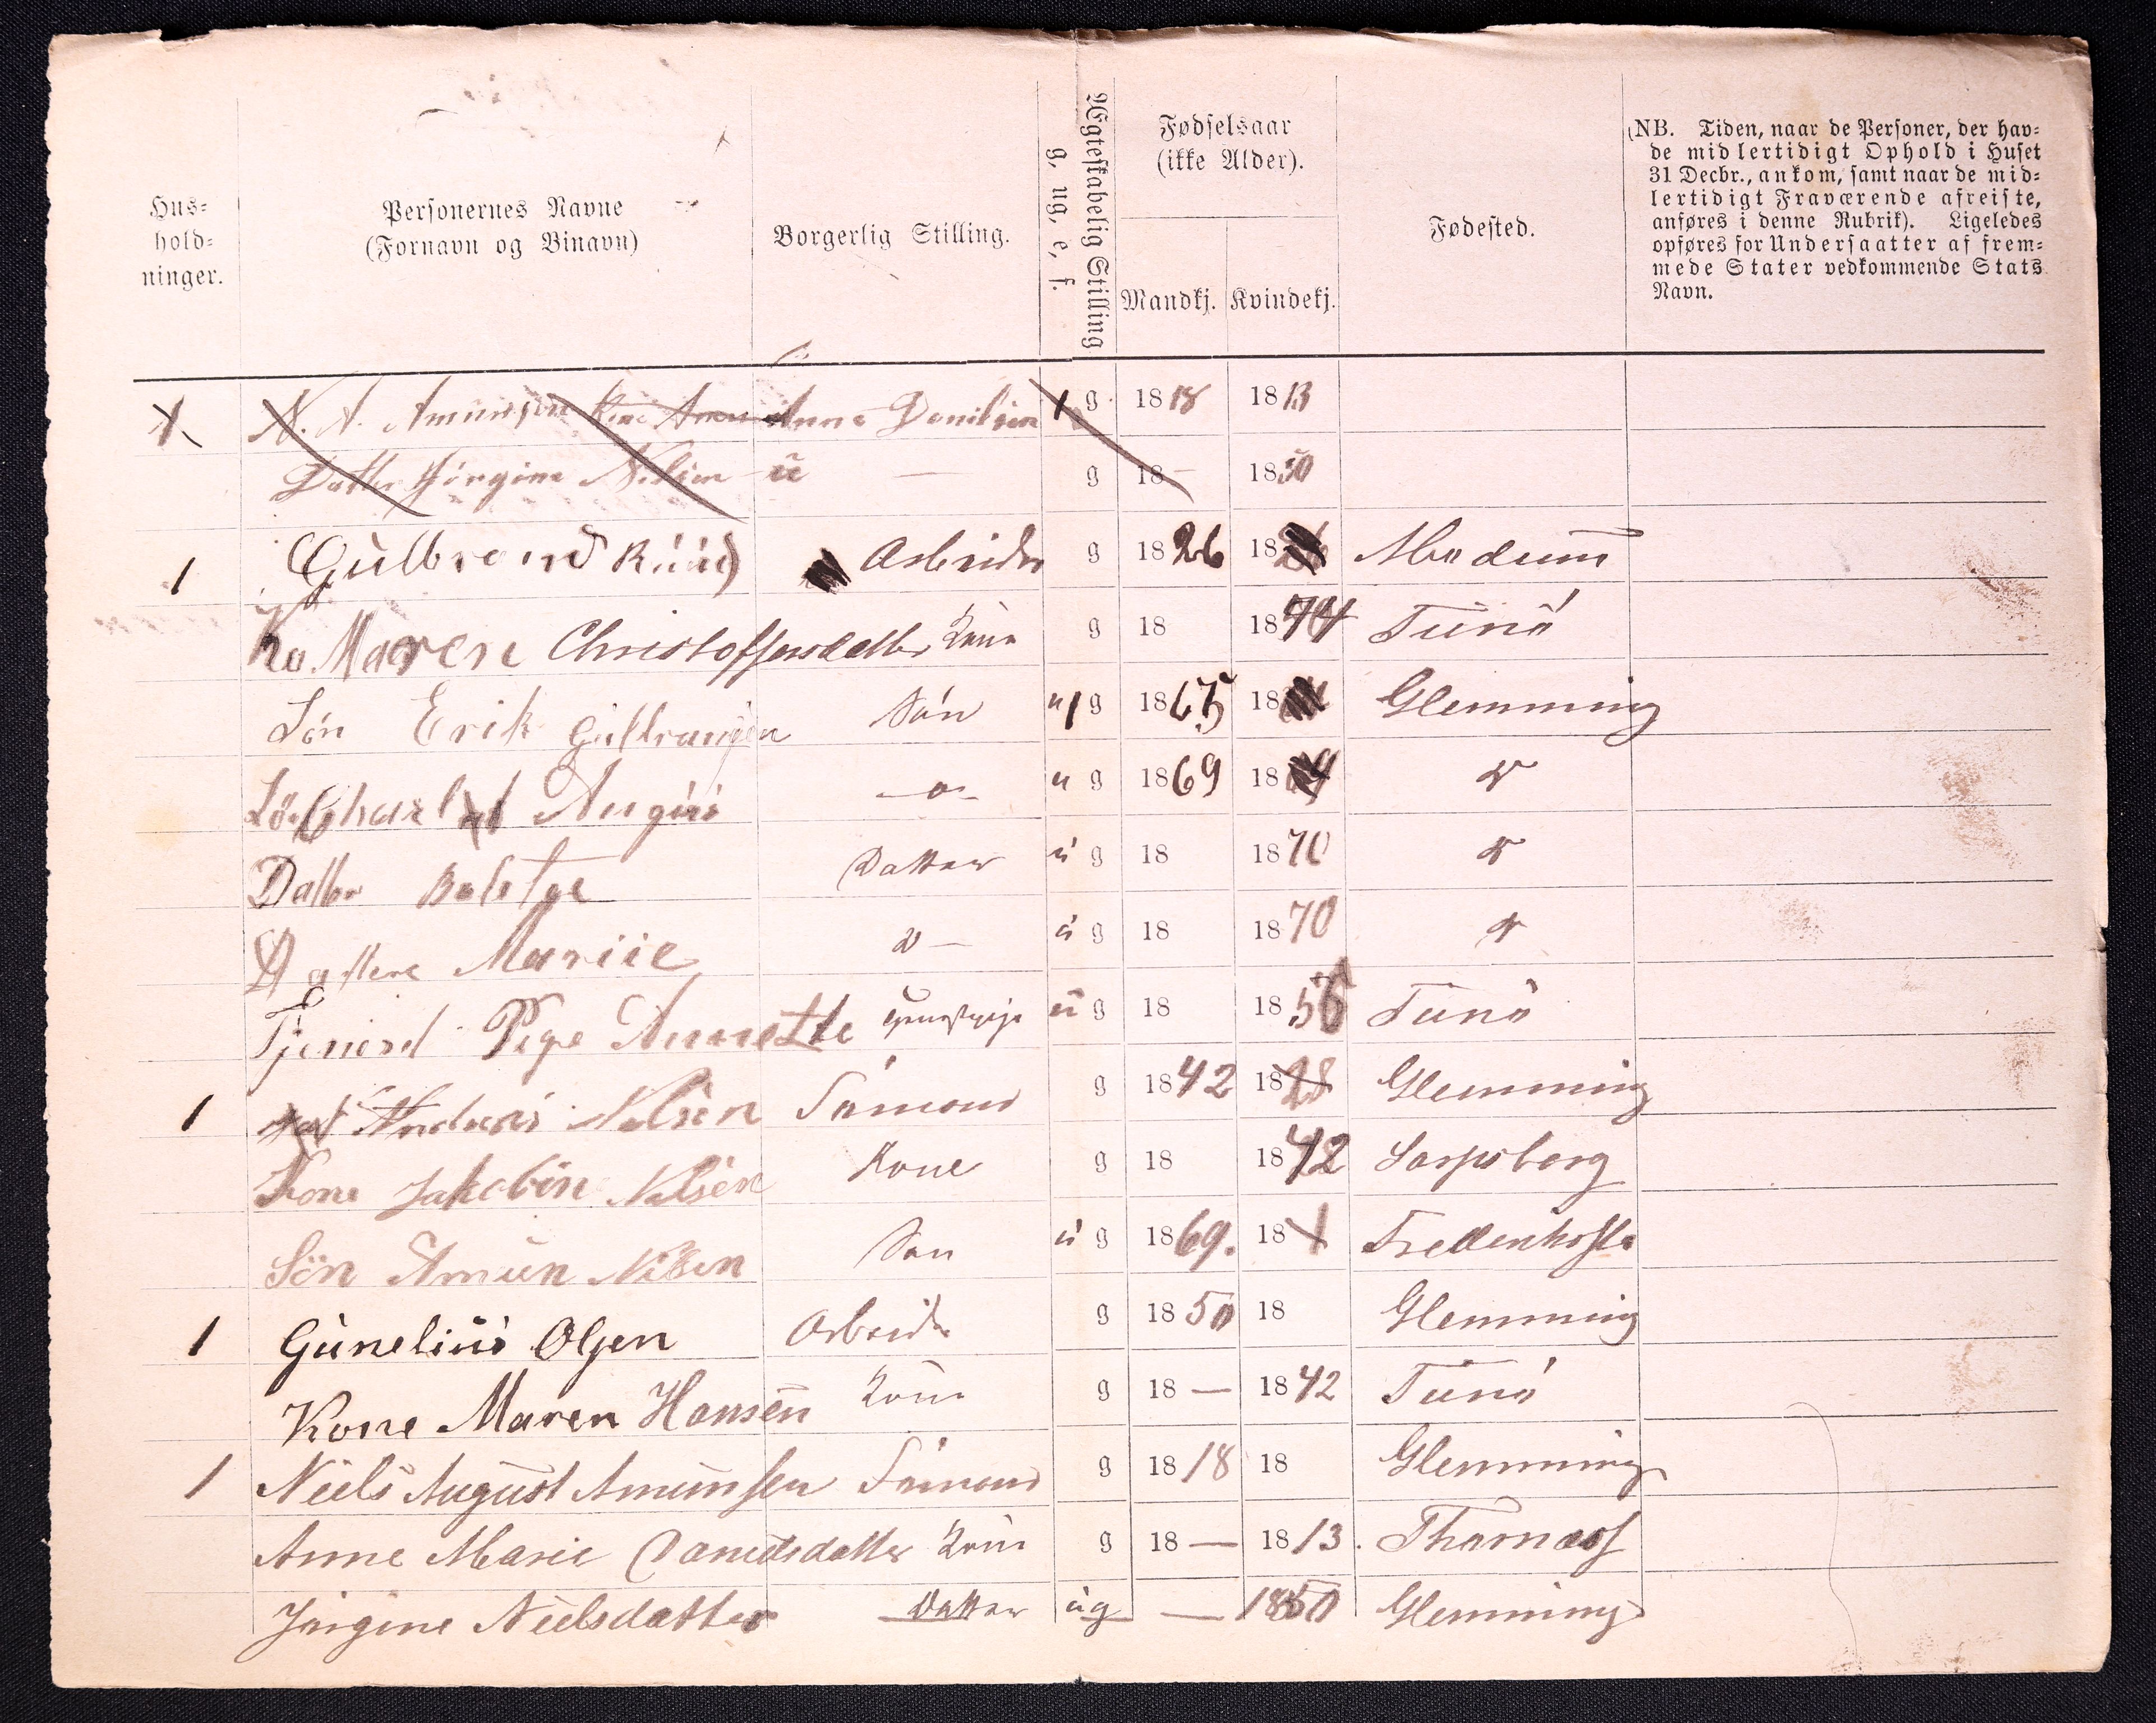 Hus=
hold=
ninger.
Personernes Navne
(Fornavn og Binavn)
Borgerlig Stilling.
Ægteskabelig Stilling
g, ug, e, f.
Fødselsaar
(ikke Alder).
Mandkj. Kvindekj.
Fødested.
(NB. Tiden, naar de Personer, der hav=
de midlertidigt Ophold i Huset
31 Decbr., ankom, samt naar de mid=
lertidigt Fraværende afreiste,
anføres i denne Rubrik). Ligeledes
opføres for Undersaatter af frem=
mede Stater vedkommende Stats
Navn.
1 N. A. Amunsen Kone Anne Danilsen g 1818 1813
Datter Jörgine Nilsen ü — g 18— 1850
1 Gulbrand Ruud Arbeider g 1826 18 Modum
Ko Maren Christoffersdatter Kone g 18 1844 Tunö
Sön Erik Gulbransen Sön u g 1865 18 Glemming
Sö Charl August —o— u g 1869 18
Datter Boletge Datter u g 18 1870
Dattere Mariie — u g 18 1870
Tjenerst Pige Annette u g 18 1856 Tunö
1 Andreas Nilsen Sömand g 1842 1828 Glemming
Kone Jakobine Nilsen Kone g 18 1842 Sarpsborg
Sön Amun Nilsen Sön u g 1869. 18 Fredenhofle
1 Gunelius Olsen Arbeider g 1850 18 Glemming
Kone Maren Hansen Kone g 18 — 1842 Tunö
1 Niels August Amunsen Sömand g 1818 18 Glemming
Anne Marie Danielsdatter Kone g 18 — 1813. Thornæs
Jörgine Nielsdatter Datter ug — 1850 Glemming